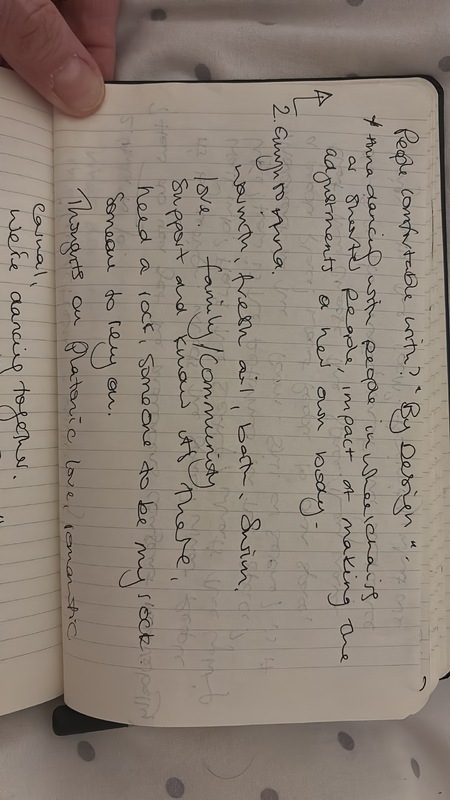 People comfortable with? "By Design".
* Anna dancing with people in wheelchairs
or shorter people, impact of making the
adjustments a her own body.
2. Gwyn to Anna.
warmth, fresh air, bath, swim,
love. family/community
support and know its there,
need a rock, someone to be my rock.
Someone to rely on.
Thoughts on Platonic love/romantic
carnal,
We're dancing together.